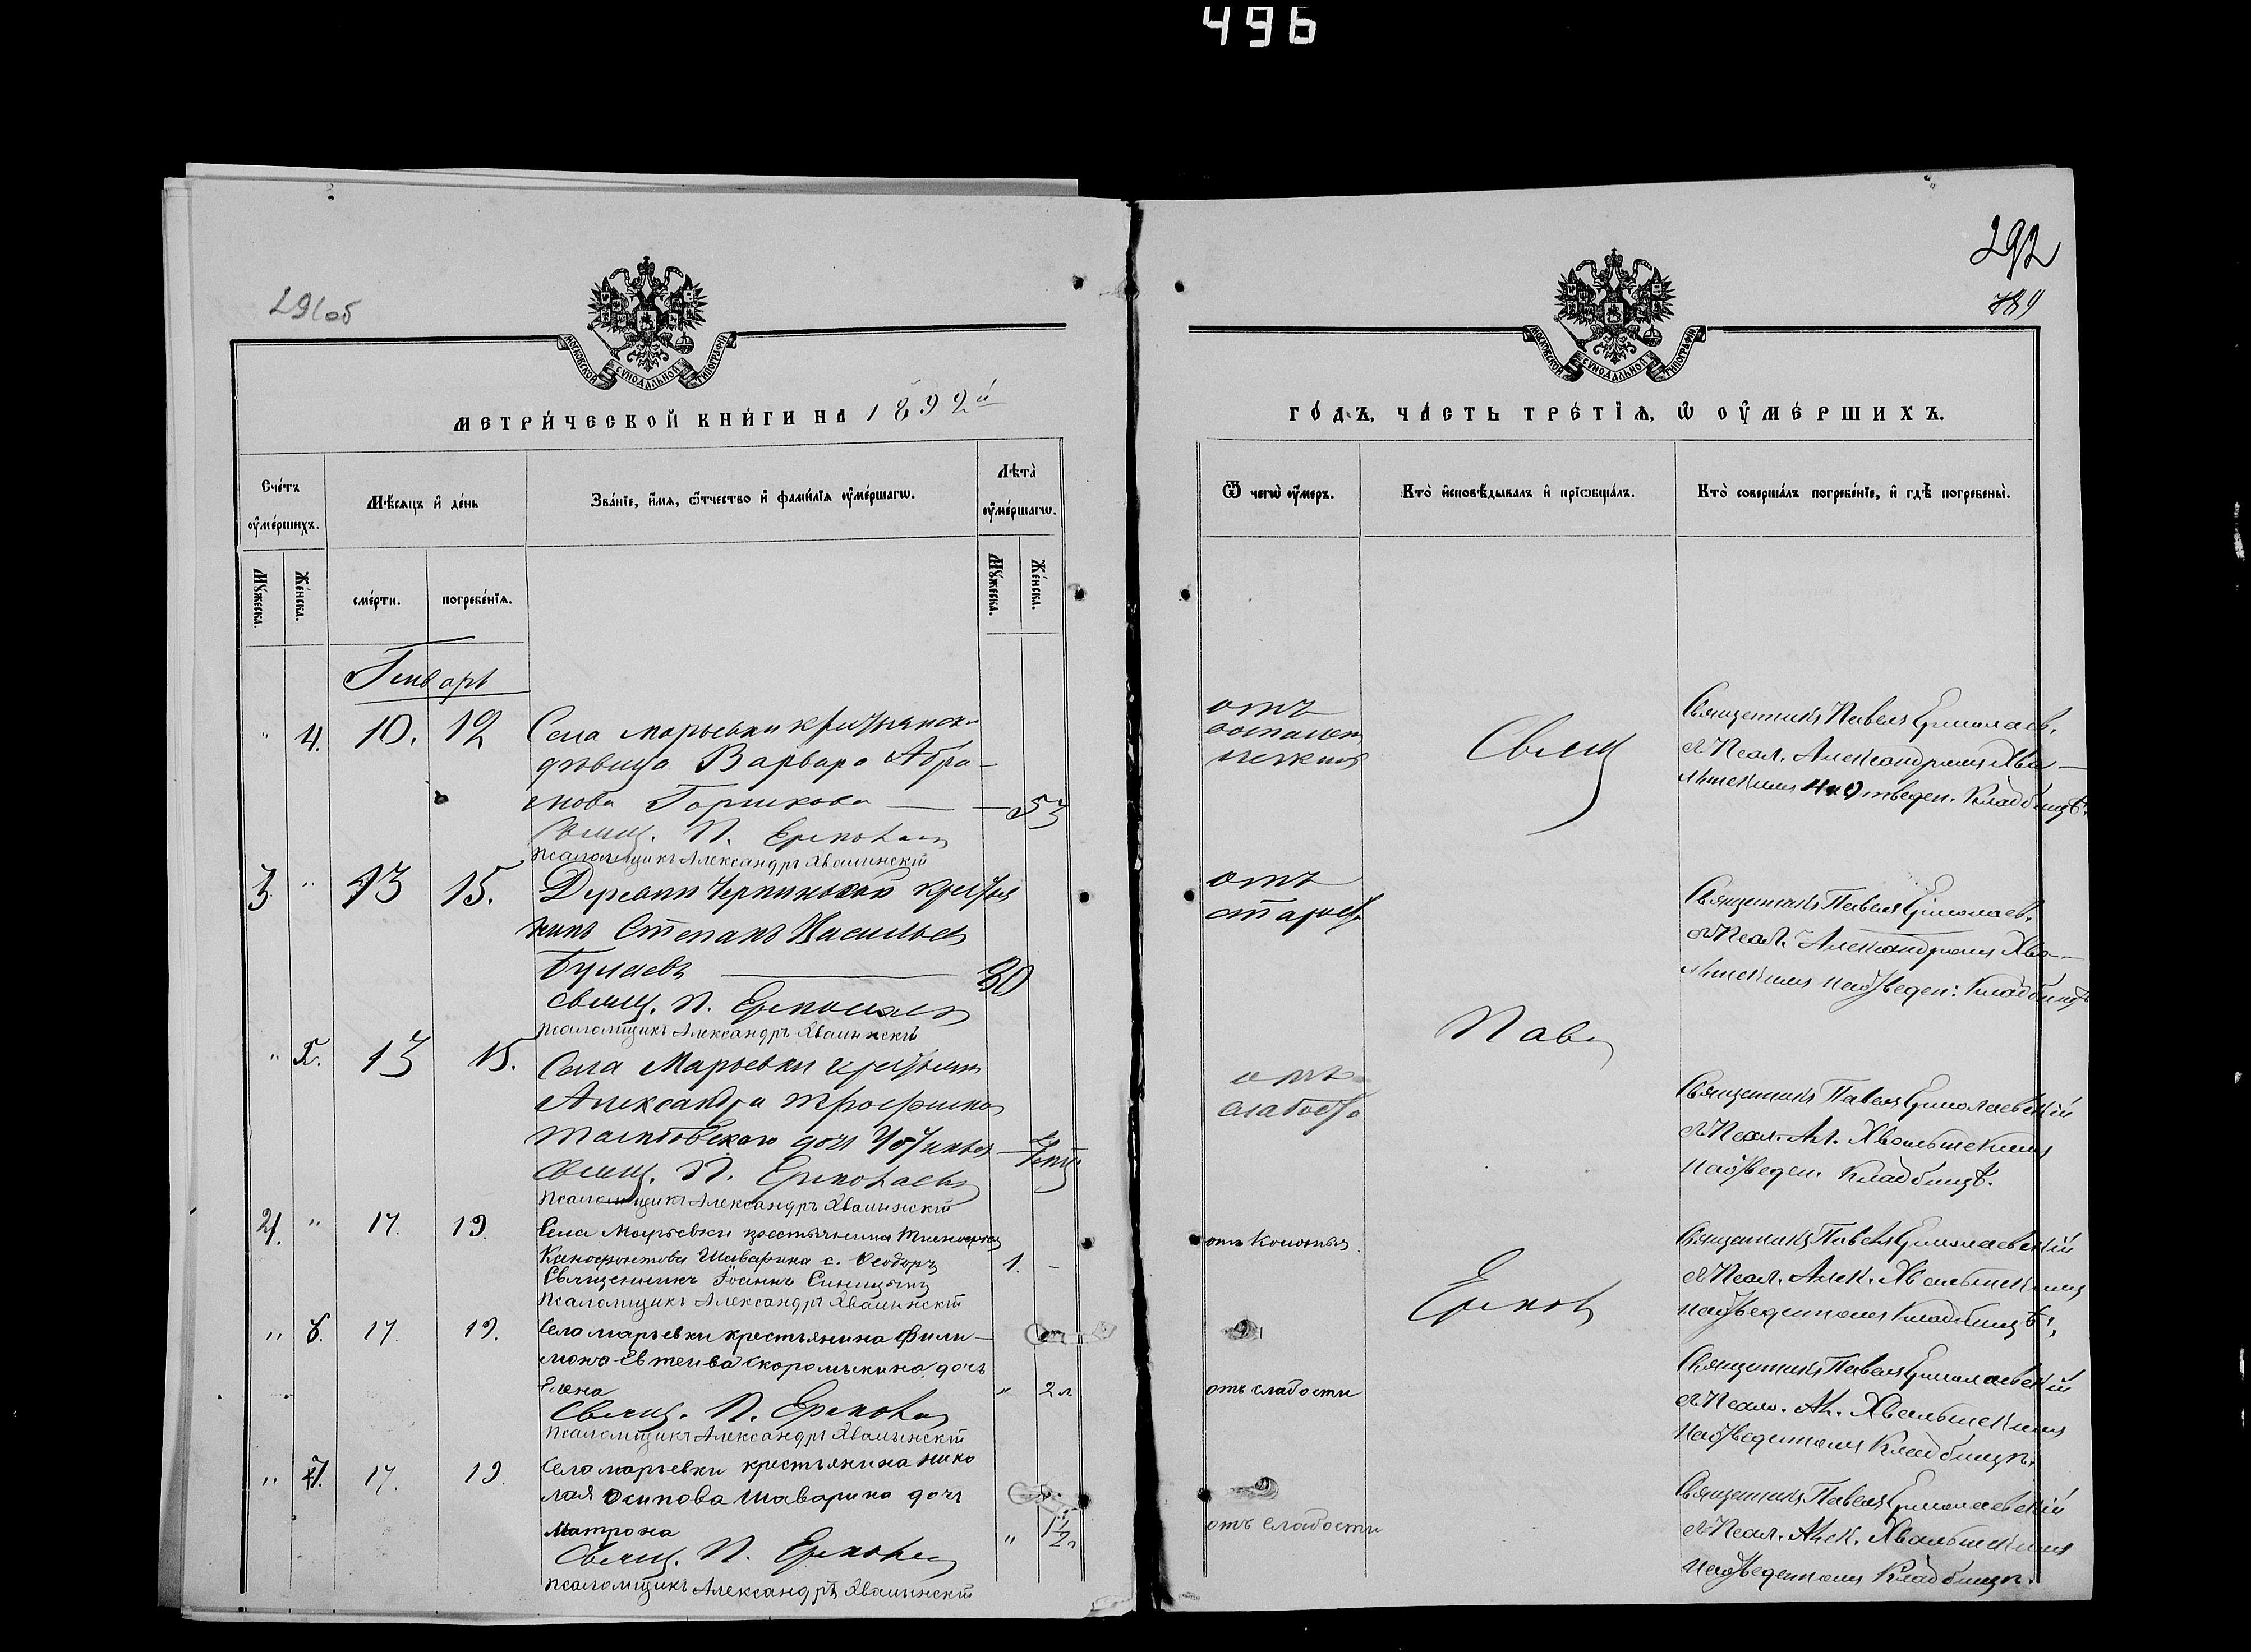 496
291об
292
789
МОСКОВСКОЙ СѴНОДАЛЬНОЙ ТИПОГРАФІИ
МОСКОВСКОЙ СѴНОДАЛЬНОЙ ТИПОГРАФІИ
МЕТРИ́ЧЕСКОЙ КНИ́ГИ НА 1892й
ГО́ДЪ, ЧА́СТЬ ТРЕ́ТІѦ, Ѡ ОУ҆МЕ́РШИХЪ.
Сче́тъ оу҆ме́ршихъ.
Мѣ́сяцъ и҆ де́нь
Зва́нїе, и҆́мя, ѻ҆́тчество и҆ фами́лїя оу҆ме́ршагѡ.
Лѣта̀ оу҆ме́ршагѡ.
Ѿ чегѡ̀ оу҆́меръ.
Кто̀ и҆сповѣ́дывалъ и҆ прїѡбща́лъ.
Кто̀ соверша́лъ погребе́нїе, и҆ гдѣ̀ погребены̀.
Мꙋ́жеска.
Же́нска.
сме́рти.
погребе́нїя.
Мꙋ́жеска.
Же́нска.
Генварь
" 4. 10. 12 Села Марьевки крестьянск.
дѣвица Варвара Абра-
мова Горшкова — 53
Свящ. П. Ермолаев
Псаломщикъ Александръ Хвалынскій
отъ
воспален
легкихъ
Священникъ Павелъ Ермолаев.
съ Псал. Александромъ Хва-
лынскимъ на Отведен. Кладбищѣ.
3. " 13 15. Деревни крестья
нинъ Степанъ Васильев
Булаевъ — 80
Свящ. П. Ермолаев
Псаломщикъ Александръ Хвалынскій
отъ
старости
Священникъ Павелъ Ермолаев.
съ Псал. Александромъ Хва-
лынскимъ на отведен. Кладбищѣ
" 5. 13 15. Села Марьевки крестьян
Александра Трофимов
дочь
Свящ. П. Ермолаевъ
Псаломщикъ Александръ Хвалынскій
отъ
слабости
Священникъ Павелъ Ермолаевскій
съ Псал. Ал. Хвалынскимъ
на отведен. Кладбищѣ.
4. " 17. 19. Села Марьевки крестьянина Тимофея
Ксенофонтова Шаварина с. Ѳеодоръ 1. -
Священникъ Іоаннъ Синицынъ
Псаломщикъ Александръ Хвалынскій
Священникъ Павелъ Ермолаевскій
съ Псал. Алек. Хвалынскимъ
на отведенномъ Кладбищѣ.
" 6. 17. 19. Села марьевки крестьянина Фили-
мона Евтеива Скоромыкина дочь
Елена " 2 л
Свящ. П. Ермолаев
Псаломщикъ Александръ Хвалынскій
отъ слабости
Священникъ Павелъ Ермолаевскій
съ Псало. Ал. Хвалынскимъ
на отведенномъ Кладбищѣ.
" 7. 17. 19. Села марьевки крестьянина нико
лая Осипова Шаварина дочь
Матрона " 1½ л
Свящ. П. Ермолаев
Псаломщикъ Александръ Хвалынскій
отъ слабости
Священникъ Павелъ Ермолаевскій
съ Псал. Алек. Хвалынскимъ
на отведенномъ Кладбищѣ.
Свящ
Павел
Ермол